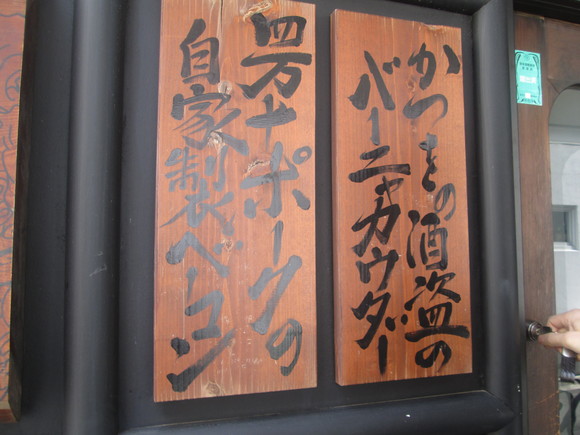 かつをの酒盗の
バーニャカウダー
四万十ポークの
自家製ベーコン